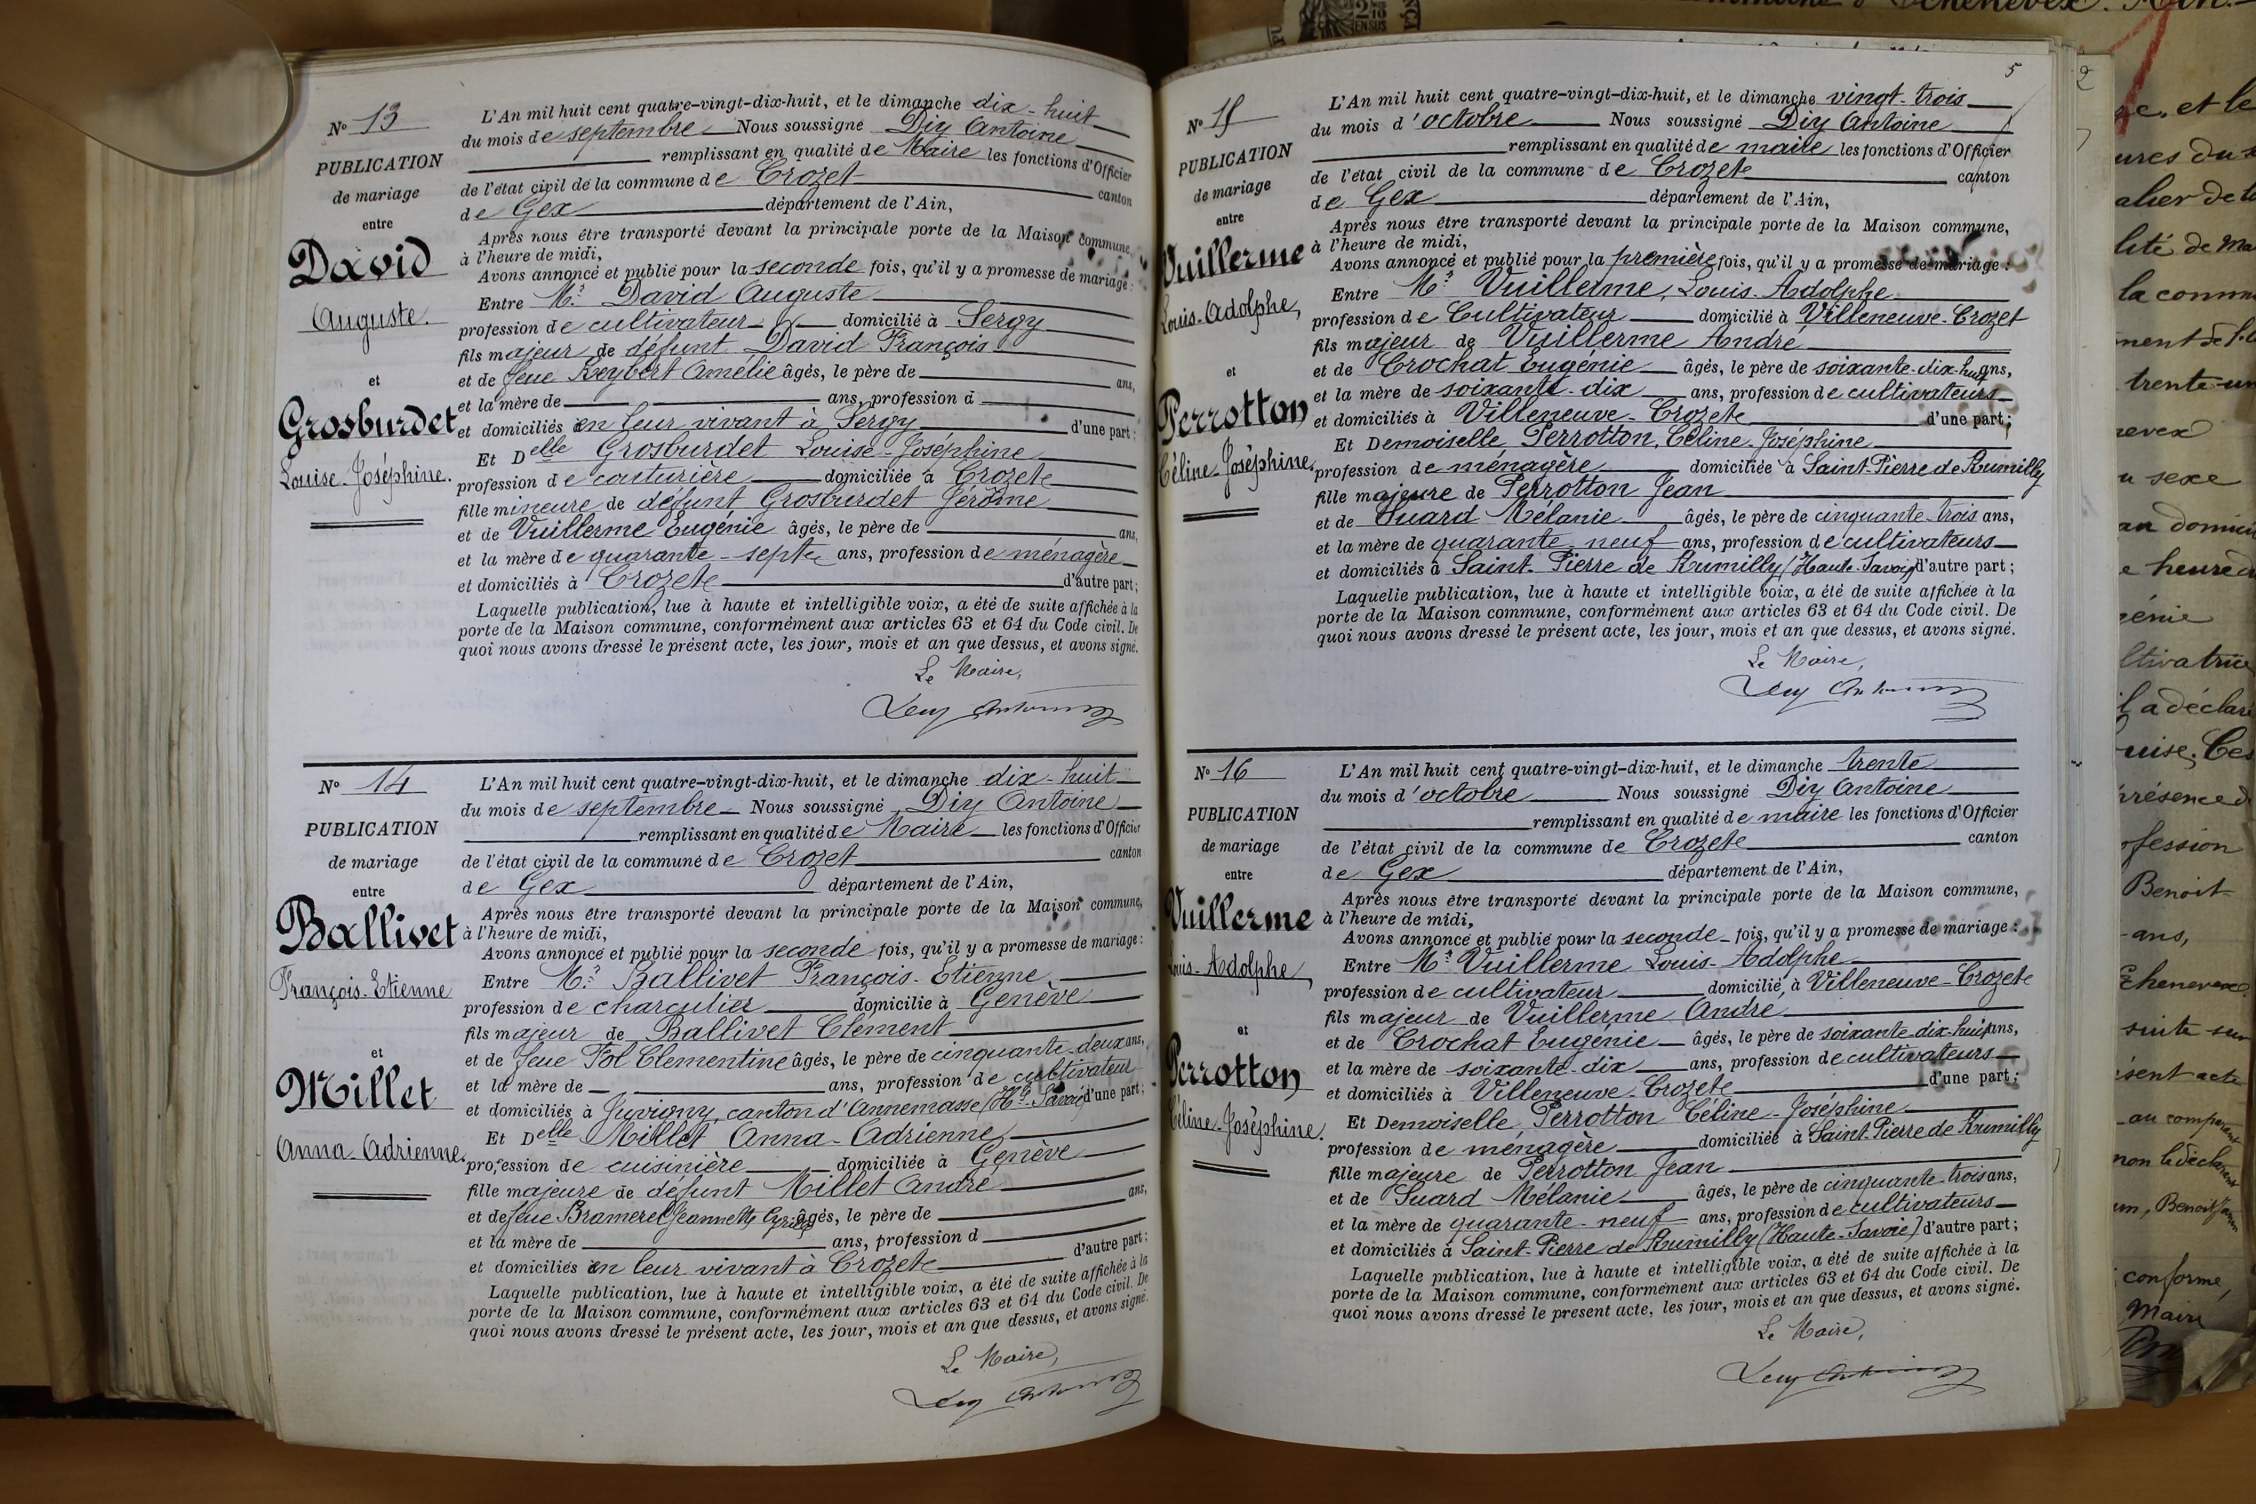 N° 13
PUBLICATION
de mariage
entre
David
Auguste.
et
Grosburdet
Louise-Joséphine.
L'An mil huit cent quatre-vingt-dix-huit, et le dimanche dix-huit
du mois de septembre Nous soussigné Diy Antoine
remplissant en qualité de Maire les fonctions d'Officier
de l'état civil de la commune de Crozet canton
de Gex département de l'Ain,
Après nous être transporté devant la principale porte de la Maison commune,
à l'heure de midi,
Avons annoncé et publié pour la seconde fois, qu'il y a promesse de mariage :
Entre Mr David Auguste
profession de cultivateur domicilié à Sergy
fils majeur de défunt David François
et de feue Reybert Amélie âgés, le père de ans,
et la mère de ans, profession d
et domiciliés en leur vivant à Sergy d'une part ;
Et Delle Grosburdet Louise-Joséphine
profession de couturière domiciliée à Crozete
fille mineure de défunt Grosburdet Jérôme
et de Vuillerme Eugénie âgés, le père de ans,
et la mère de quarante-septe ans, profession de ménagère
et domiciliés à Crozete d'autre part ;
Laquelle publication, lue à haute et intelligible voix, a été de suite affichée à la
porte de la Maison commune, conformément aux articles 63 et 64 du Code civil. De
quoi nous avons dressé le présent acte, les jour, mois et an que dessus, et avons signé.
Le Maire,
N° 14
PUBLICATION
de mariage
entre
Ballivet
François-Etienne
et
Millet
Anna-Adrienne.
L'An mil huit cent quatre-vingt-dix-huit, et le dimanche dix-huit
du mois de septembre Nous soussigné Diy Antoine
remplissant en qualité de Maire les fonctions d'Officier
de l'état civil de la commune de Crozet canton
de Gex département de l'Ain,
Après nous être transporté devant la principale porte de la Maison commune,
à l'heure de midi,
Avons annoncé et publié pour la seconde fois, qu'il y a promesse de mariage :
Entre Mr Ballivet François-Etienne
profession de charcutier domicilié à Genève
fils majeur de Ballivet Clément
et de feue Fol Clementine âgés, le père de cinquante-deux ans,
et la mère de ans, profession de cultivateur
et domiciliés à Juvigny, canton d'Annemasse (Hte Savoie) d'une part ;
Et Delle Millet Anna-Adrienne
profession de cuisinière domiciliée à Genève
fille majeure de défunt Millet André
et de feue Bramerel Jeannette âgés, le père de ans,
et la mère de ans, profession d
et domiciliés en leur vivant à Crozete d'autre part ;
Laquelle publication, lue à haute et intelligible voix, a été de suite affichée à la
porte de la Maison commune, conformément aux articles 63 et 64 du Code civil. De
quoi nous avons dressé le présent acte, les jour, mois et an que dessus, et avons signé.
Le Maire,
5
N° 15
PUBLICATION
de mariage
entre
Vuillerme
Louis-Adolphe,
et
Perrotton
Céline-Joséphine.
L'An mil huit cent quatre-vingt-dix-huit, et le dimanche vingt-trois
du mois d'octobre Nous soussigné Diy Antoine
remplissant en qualité de maire les fonctions d'Officier
de l'état civil de la commune de Crozete canton
de Gex département de l'Ain,
Après nous être transporté devant la principale porte de la Maison commune,
à l'heure de midi,
Avons annoncé et publié pour la première fois, qu'il y a promesse de mariage :
Entre Mr Vuillerme, Louis-Adolphe
profession de Cultivateur domicilié à Villeneuve-Crozet
fils majeur de Vuillerme André
et de Crochat Eugénie âgés, le père de soixante-dix-huit ans,
et la mère de soixante-dix ans, profession de cultivateurs
et domiciliés à Villeneuve-Crozete d'une part ;
Et Demoiselle Perrotton, Céline-Joséphine
profession de ménagère domiciliée à Saint-Pierre de Rumilly
fille majeure de Perrotton Jean
et de Suard Mélanie âgés, le père de cinquante-trois ans,
et la mère de quarante neuf ans, profession de cultivateurs
et domiciliés à Saint-Pierre de Rumilly (Haute-Savoie) d'autre part ;
Laquelle publication, lue à haute et intelligible voix, a été de suite affichée à la
porte de la Maison commune, conformément aux articles 63 et 64 du Code civil. De
quoi nous avons dressé le présent acte, les jour, mois et an que dessus, et avons signé.
Le Maire,
N° 16
PUBLICATION
de mariage
entre
Vuillerme
Louis-Adolphe
et
Perrotton
Céline-Joséphine.
L'An mil huit cent quatre-vingt-dix-huit, et le dimanche trente
du mois d'octobre Nous soussigné Diy Antoine
remplissant en qualité de maire les fonctions d'Officier
de l'état civil de la commune de Crozete canton
de Gex département de l'Ain,
Après nous être transporté devant la principale porte de la Maison commune,
à l'heure de midi,
Avons annoncé et publié pour la seconde fois, qu'il y a promesse de mariage :
Entre Mr Vuillerme Louis-Adolphe
profession de cultivateur domicilié à Villeneuve-Crozete
fils majeur de Vuillerme André
et de Crochat Eugénie âgés, le père de soixante-dix-huit ans,
et la mère de soixante-dix ans, profession de cultivateurs
et domiciliés à Villeneuve-Crozete d'une part ;
Et Demoiselle Perrotton Céline-Joséphine
profession de ménagère domiciliée à Saint-Pierre de Rumilly
fille majeure de Perrotton Jean
et de Suard Mélanie âgés, le père de cinquante-trois ans,
et la mère de quarante-neuf ans, profession de cultivateurs
et domiciliés à Saint-Pierre de Rumilly (Haute-Savoie) d'autre part ;
Laquelle publication, lue à haute et intelligible voix, a été de suite affichée à la
porte de la Maison commune, conformément aux articles 63 et 64 du Code civil. De
quoi nous avons dressé le présent acte, les jour, mois et an que dessus, et avons signé.
Le Maire,
2
et le
la commu
trente-un
sexe
heure
a déclaré
Benoit
ans,
Echenevex
suite sur
acte
au comparant
Benoit
conforme,
Maire